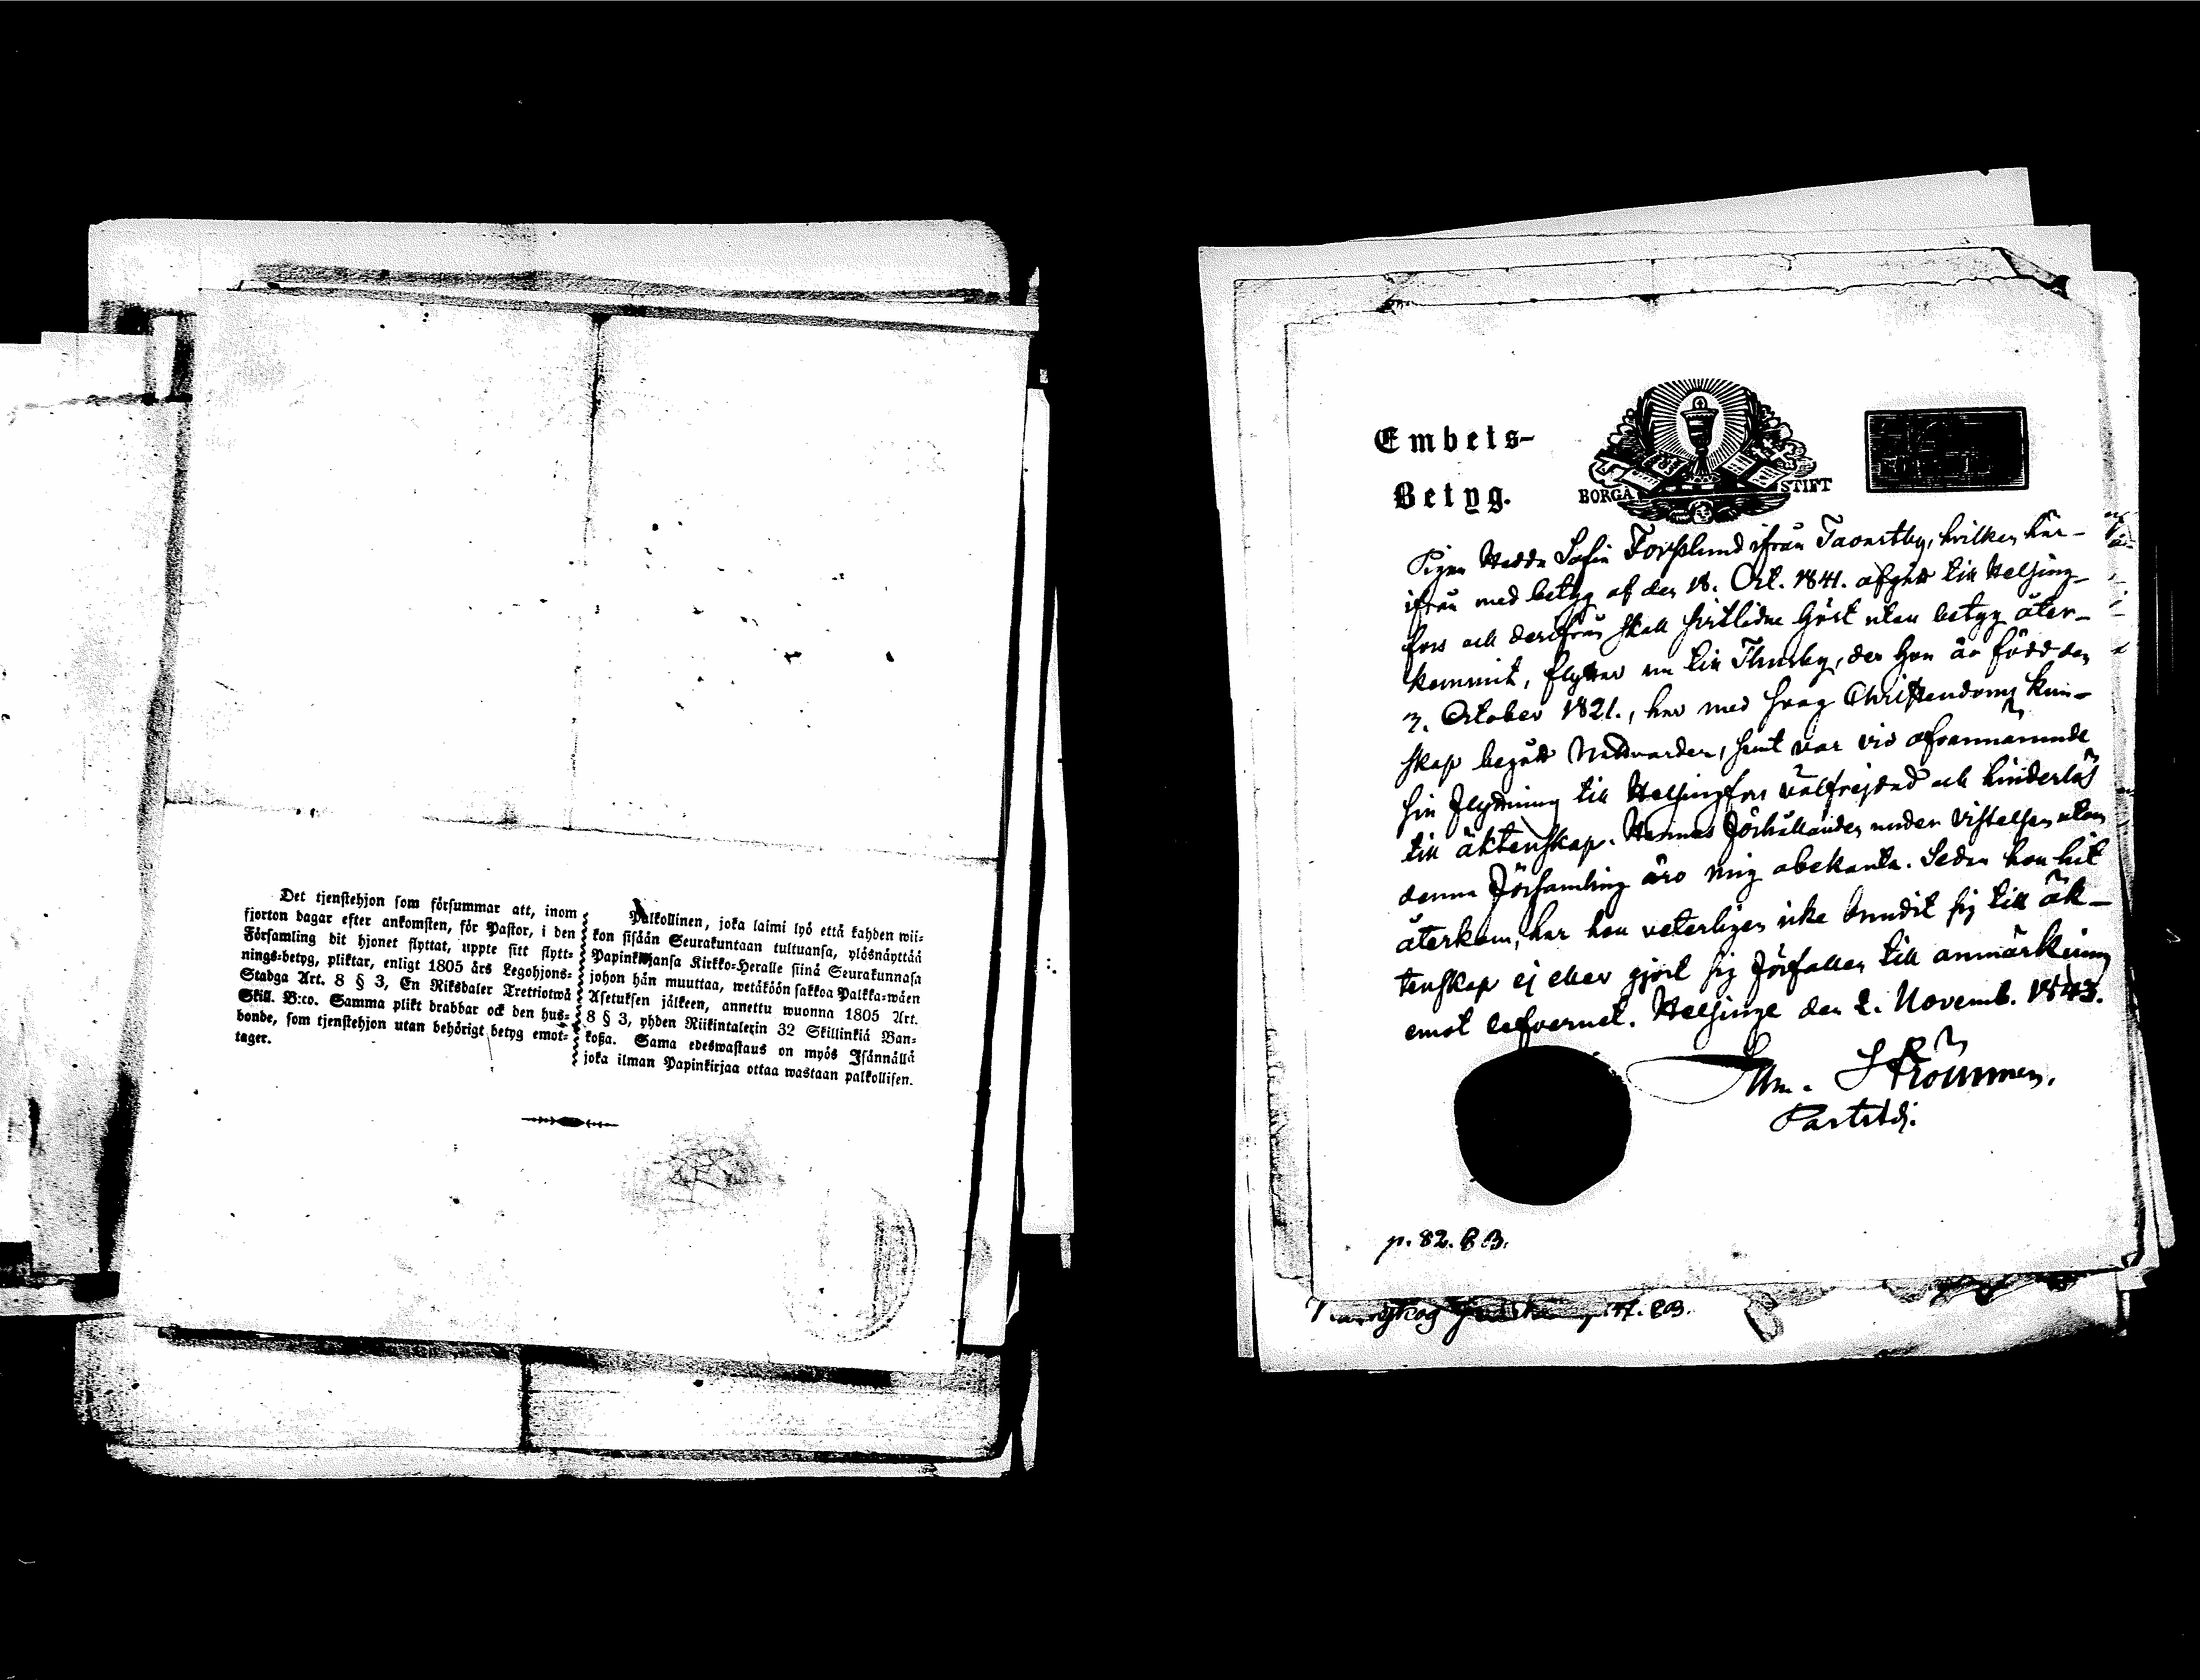 Det tjenstehjon som försummar att, inom
fjorton dagar efter ankomsten, för Pastor, i den
Församling dit hjonet flyttat, uppte sitt flytt-
nings-betyg, pliktar, enligt 1805 års Legohjons-
Stadga Art. 8 § 3, En Riksdaler Trettiotwå
Skill. B:co. Samma plikt drabbar ock den hus-
bonde, som tjenstehjon utan behörigt betyg emot-
tager.
Palkollinen, joka laimi lyö että kahden wii-
kon sisään Seurakuntaan tultuansa, ylösnäyttää
Papinkirjansa Kirkko-Heralle siinä Seurakunnasa
johon hän muuttaa, wetäköön sakkoa Palkka-wäen
Asetuksen jälkeen, annettu wuonna 1805 Art.
8 § 3, yhden Riikintalerin 32 Skillinkiä Ban-
koßa. Sama edeswastaus on myös Isännällä
joka ilman Papinkirjaa ottaa wastaan palkollisen.
Embets-
Betyg.
BORGÅ STIFT
Pigan Hedda Sofia Forsslund ifrån här-
ifrån med betyg af den 18. Oct. 1841. afgått till Helsing-
fors och derifrån skall sistlidne höst utan betyg åter-
kommit, flyttar nu till Thusby, der hon är född den
3. October 1821., har med svag Christendoms kun-
skap begått Nattvarden, samt var vid ofvannämnde
sin flyttning till Helsingfors välfrejdad och hinderlös
till äktenskap. Hennes förhållanden under vistelsen utom
denna församling äro mig obekanta. Sedan hon hit
återkom, har hon veterligen icke bundit sig till äk-
tenskap ej eller gjort sig förfallen till anmärkning
emot lefvernet. Helsinge den 2. Novemb. 1843.
p. 82. B.